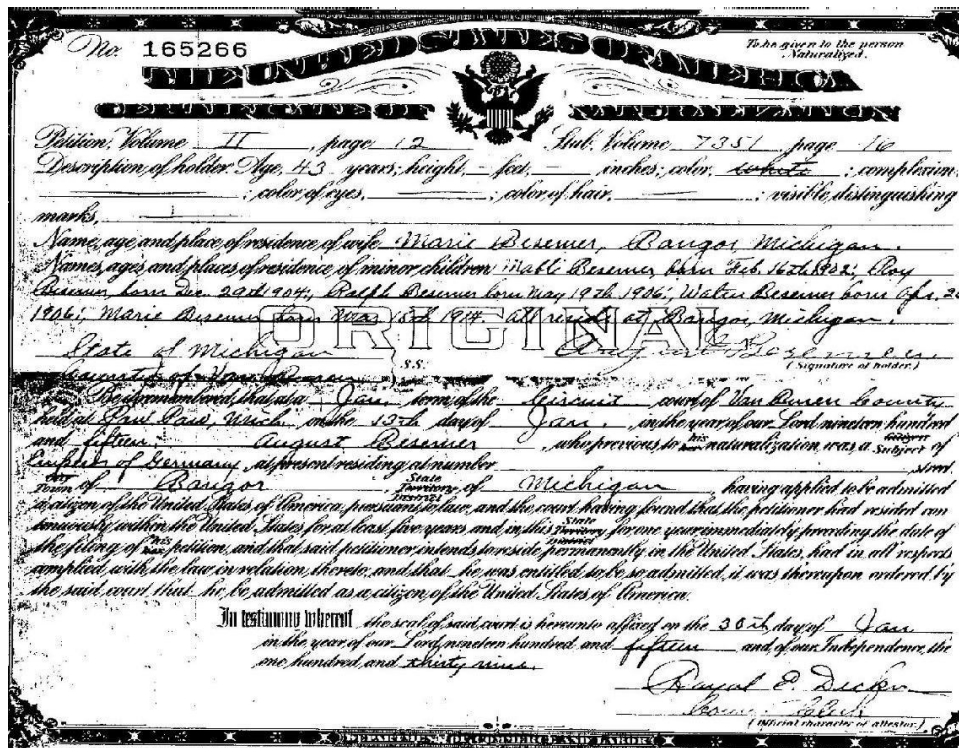 No. 165266
To be given to the person Naturalized.
THE UNITED STATES OF AMERICA
CERTIFICATE OF NATURALIZATION
Petition, Volume II, page 12 Stub, Volume 7351 page 16
Description of holder: Age, 43 years; height, – feet, – inches; color, white; complexion,
; color of eyes, ; color of hair, ; visible distinguishing
marks,
Name, age and place of residence of wife Marie Besemer, Bangor, Michigan.
Names, ages and places of residence of minor children Mable Besemer born Feb. 16th 1902; Roy
Besemer born Dec. 29th 1904; Ralph Besemer born May 19th 1906; Walter Besemer born Apr. 20
1906; Marie Besemer born Mar 15th 1914 all reside at Bangor, Michigan.
ORIGINAL
State of Michigan
County of Van Buren } S.S.
August Besemer
(Signature of holder.)
Be it remembered, that at a Jan. term of the Circuit court of Van Buren County
held at Paw Paw, Mich. on the 13th day of Jan., in the year of our Lord nineteen hundred
and fifteen August Besemer, who previous to his naturalization was a Subject of
Empire of Germany, at present residing at number street,
Town of Bangor, State Territory District of Michigan, having applied to be admitted
a citizen of the United States of America, pursuant to law, and the court having found that the petitioner had resided con
tinuously within the United States for at least five years and in this State Territory District for one year immediately preceding the date of
the filing of his petition, and that said petitioner intends to reside permanently in the United States, had in all respects
complied with the law in relation thereto, and that he was entitled to be so admitted, it was thereupon ordered by
the said court that he be admitted as a citizen of the United States of America.
In testimony whereof the seal of said court is hereunto affixed on the 30th day of Jan
in the year of our Lord nineteen hundred and fifteen and of our Independence the
one hundred and thirty nine.
E. Decker
County Clerk
(Official character of attestor.)
DEPARTMENT OF COMMERCE AND LABOR